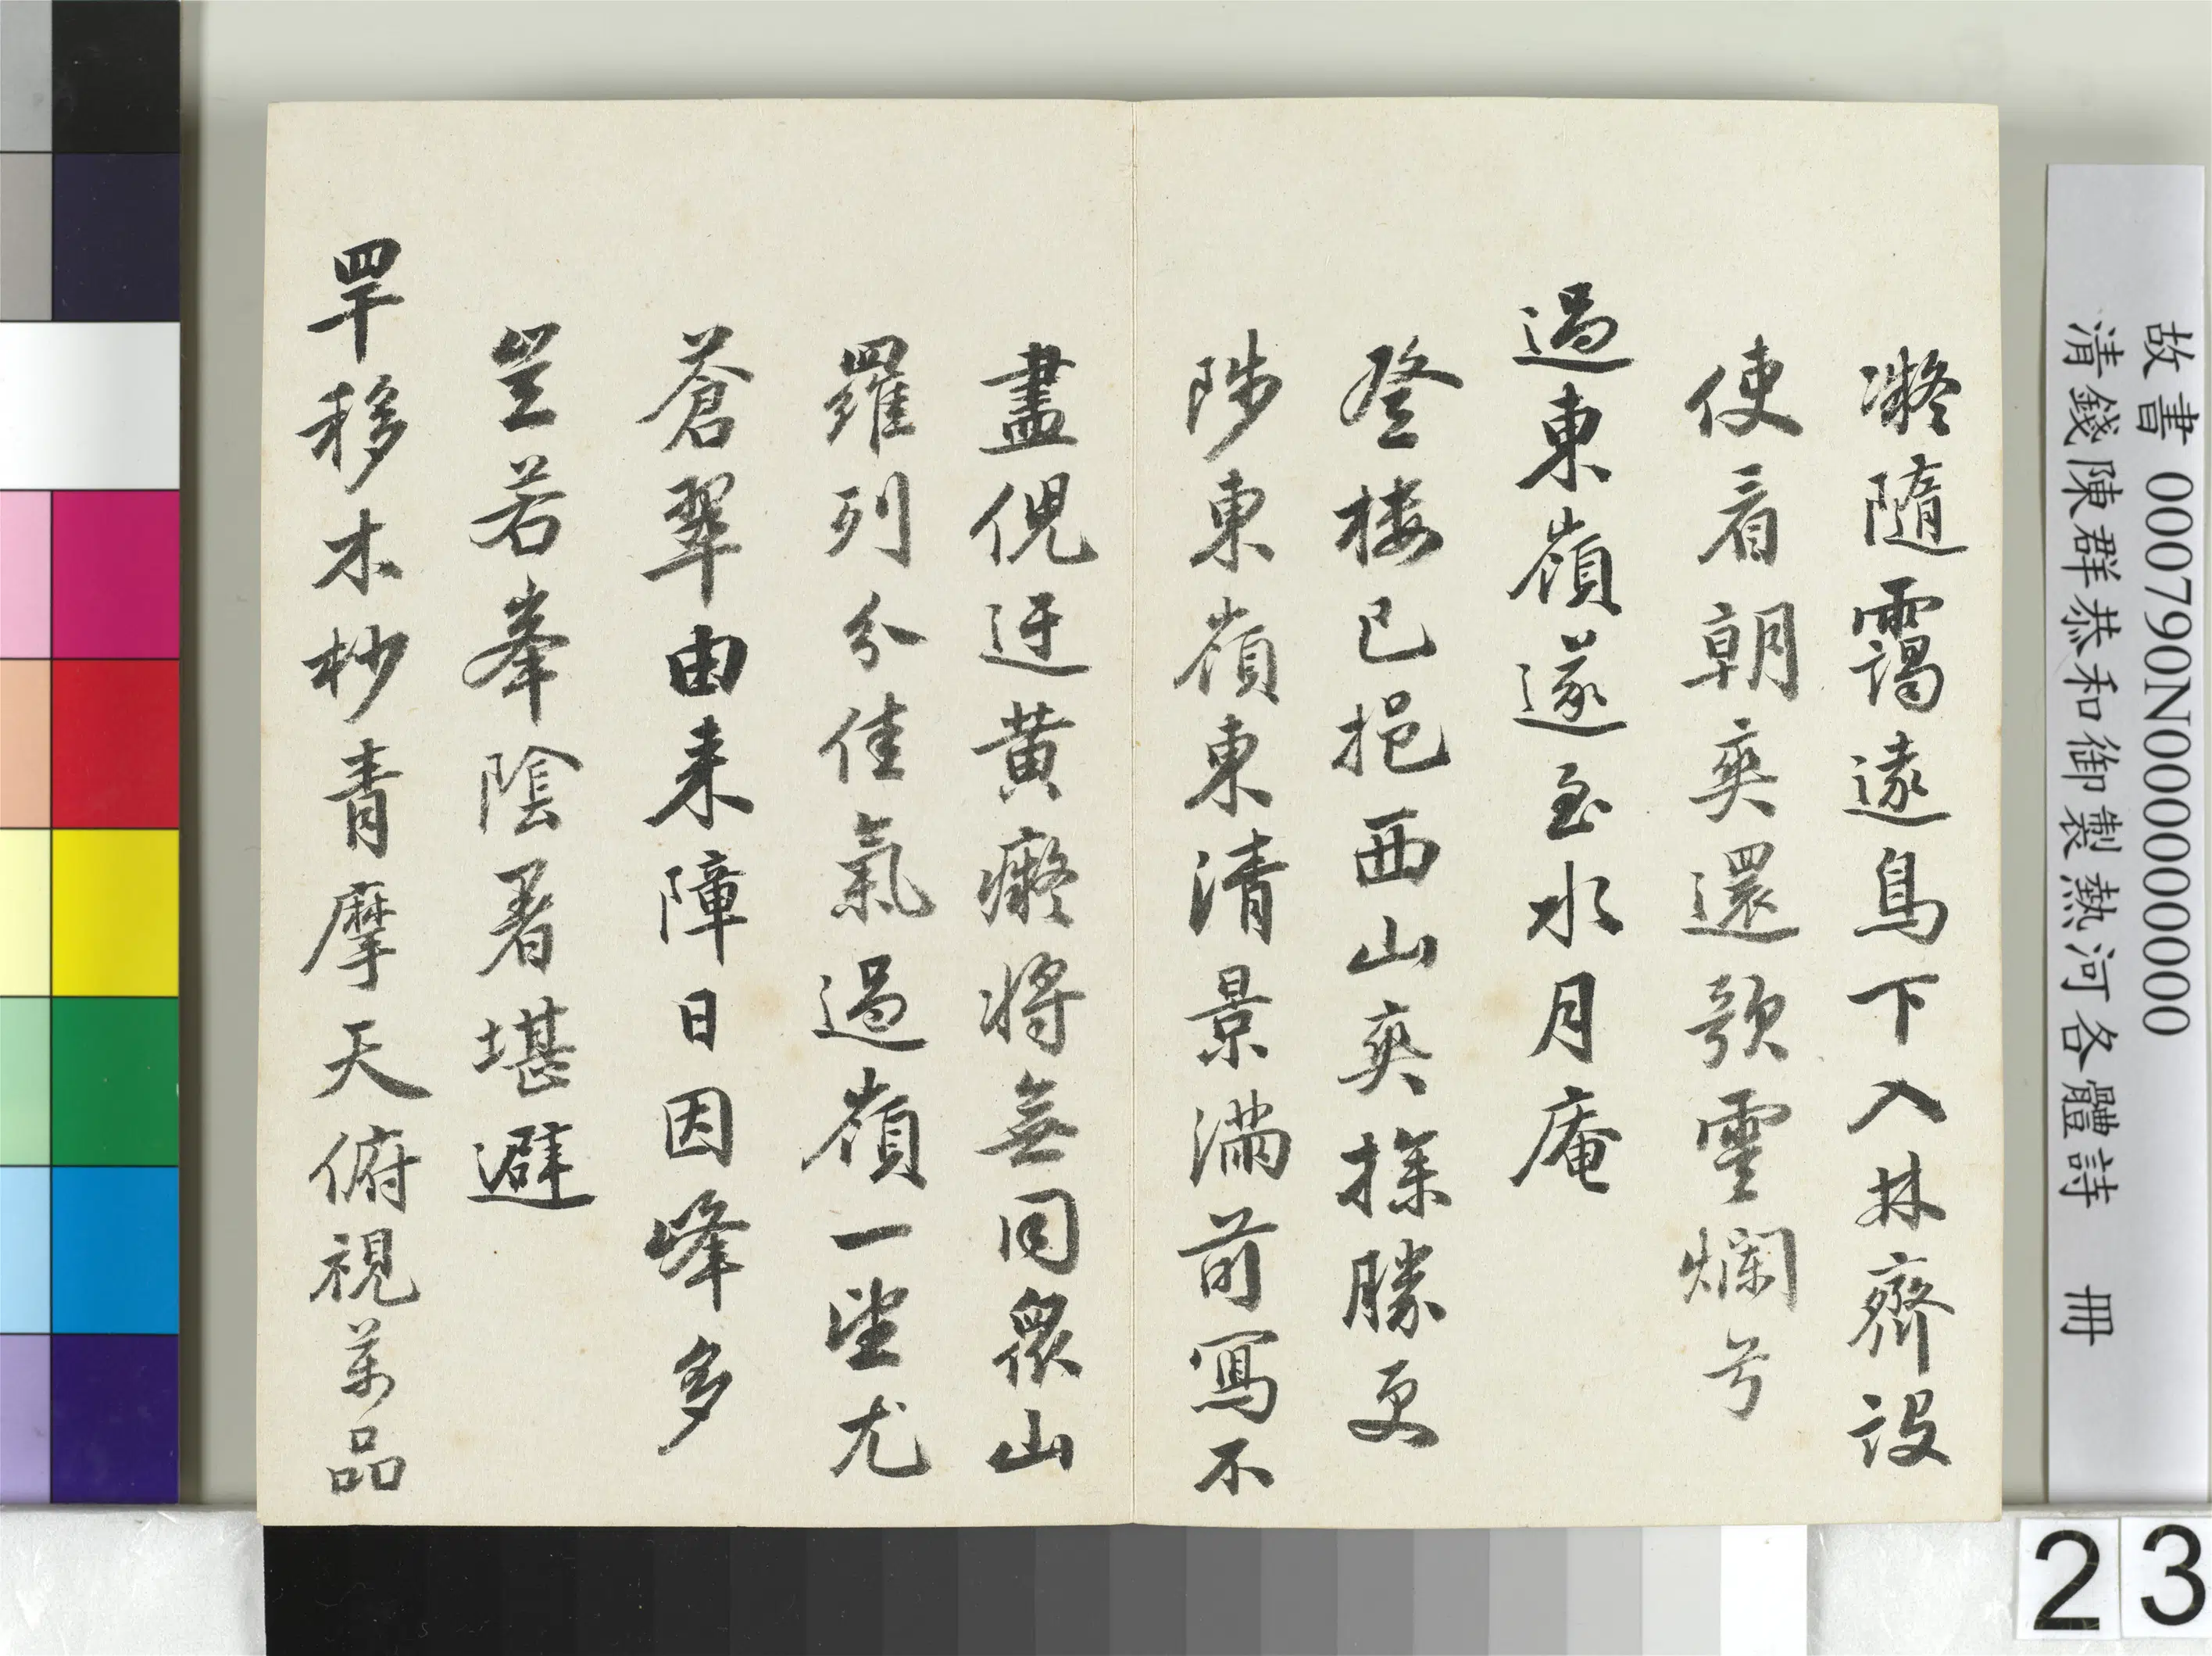 凝隨靄遠鳥下入林齊設
使看朝爽還歌雲爛兮
過東嶺遂至水月庵
登楼已挹西山爽探勝更
陟東嶺東清景滿前寫不
盡倪迂黄癡將無同衆山
羅列分佳氣過嶺一望尤
蒼翠由来障日因峰多
豈若峯陰暑堪避
罕移木杪青摩天俯視萬品
故書 000790N000000000
清錢陳群恭和御製熱河各體詩 冊
23